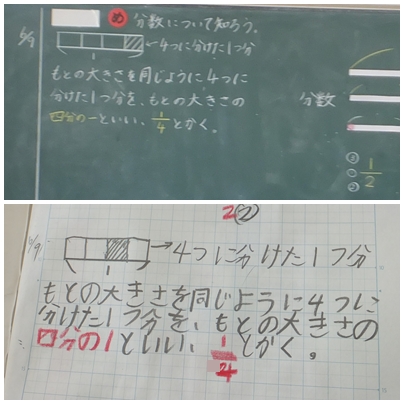 6/9 め 分数について知ろう。
←4つに分けた1つ分
1
もとの大きさを同じように4つに
分けた1つ分を、もとの大きさの
四分の一といい、1/4とかく。
分数
① 1/2
①
②
2②
6/9 →4つに分けた1つ分
1
もとの大きさを同じように4つに
分けた1つ分を、もとの大きさの
四分の1といい、1/4とかく。